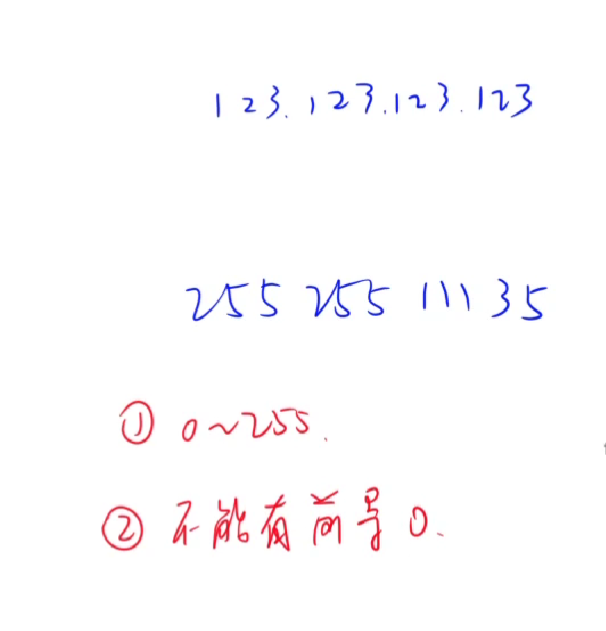 123.123.123.123
255 255 111 35
① 0~255.
② 不能有前导0.